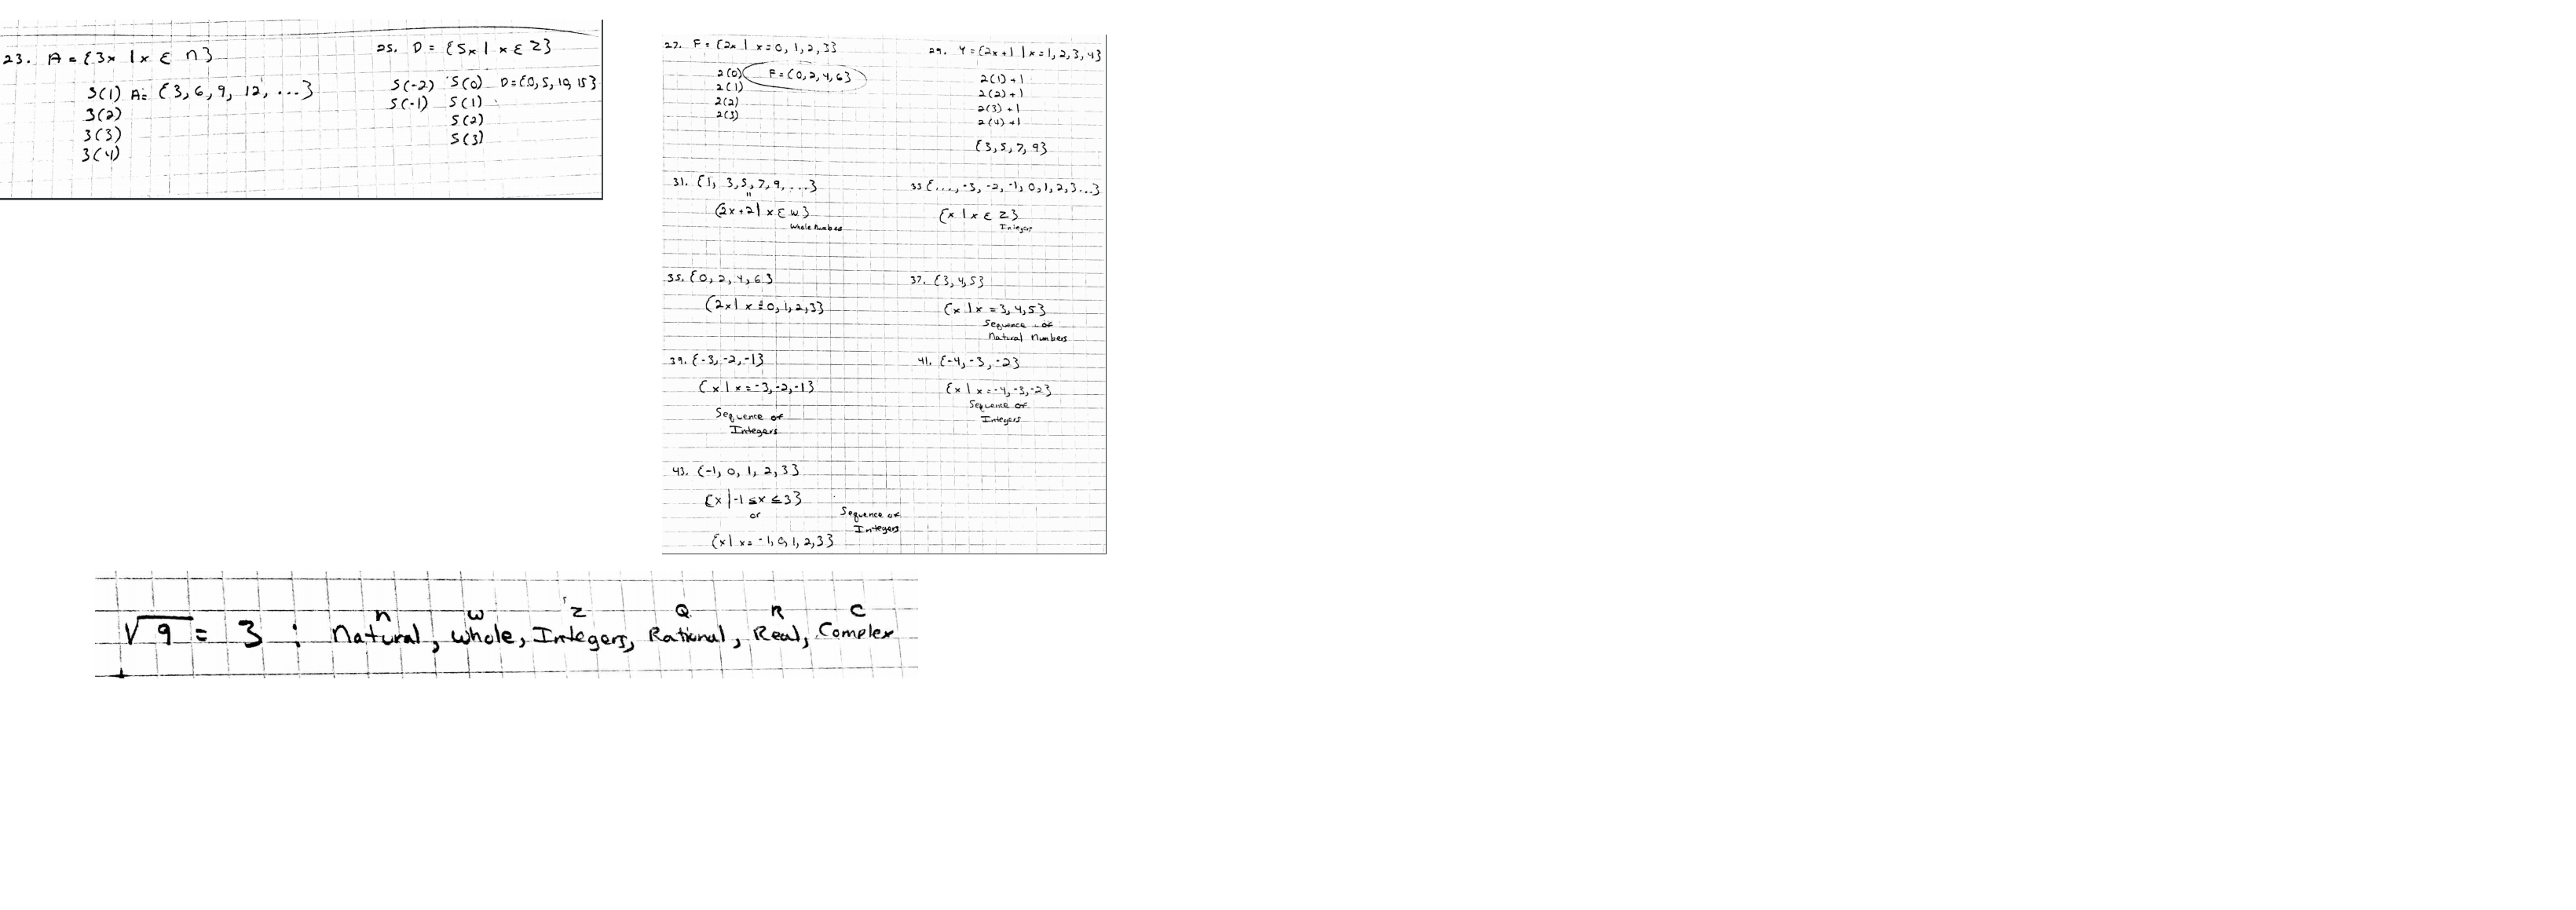 23. A = {3x | x ε n}
3(1) A = {3, 6, 9, 12, ...}
3(2)
3(3)
3(4)
25. D = {5x | x ε Z}
5(-2) 5(0) D = {0, 5, 10, 15}
5(-1) 5(1)
5(2)
5(3)
27. F = {2x | x = 0, 1, 2, 3}
2(0) F = {0, 2, 4, 6}
2(1)
2(2)
2(3)
29. Y = {2x+1 | x = 1, 2, 3, 4}
2(1)+1
2(2)+1
2(3)+1
2(4)+1
{3, 5, 7, 9}
31. {1, 3, 5, 7, 9, ...}
{2x+2 | x ε w}
Whole Number
33 {..., -3, -2, -1, 0, 1, 2, 3...}
{x | x ε Z}
Integer
35. {0, 2, 4, 6}
{2x | x = 0, 1, 2, 3}
37. {3, 4, 5}
{x | x = 3, 4, 5}
Sequence of
Natural Numbers
39. {-3, -2, -1}
{x | x = -3, -2, -1}
Sequence of
Integers
41. {-4, -3, -2}
{x | x = -4, -3, -2}
Sequence of
Integers
43. {-1, 0, 1, 2, 3}
{x | -1 ≤ x ≤ 3}
or
Sequence of
Integers
{x | x = -1, 0, 1, 2, 3}
n w Z Q R C
√9 = 3 : Natural, whole, Integers, Rational, Real, Complex